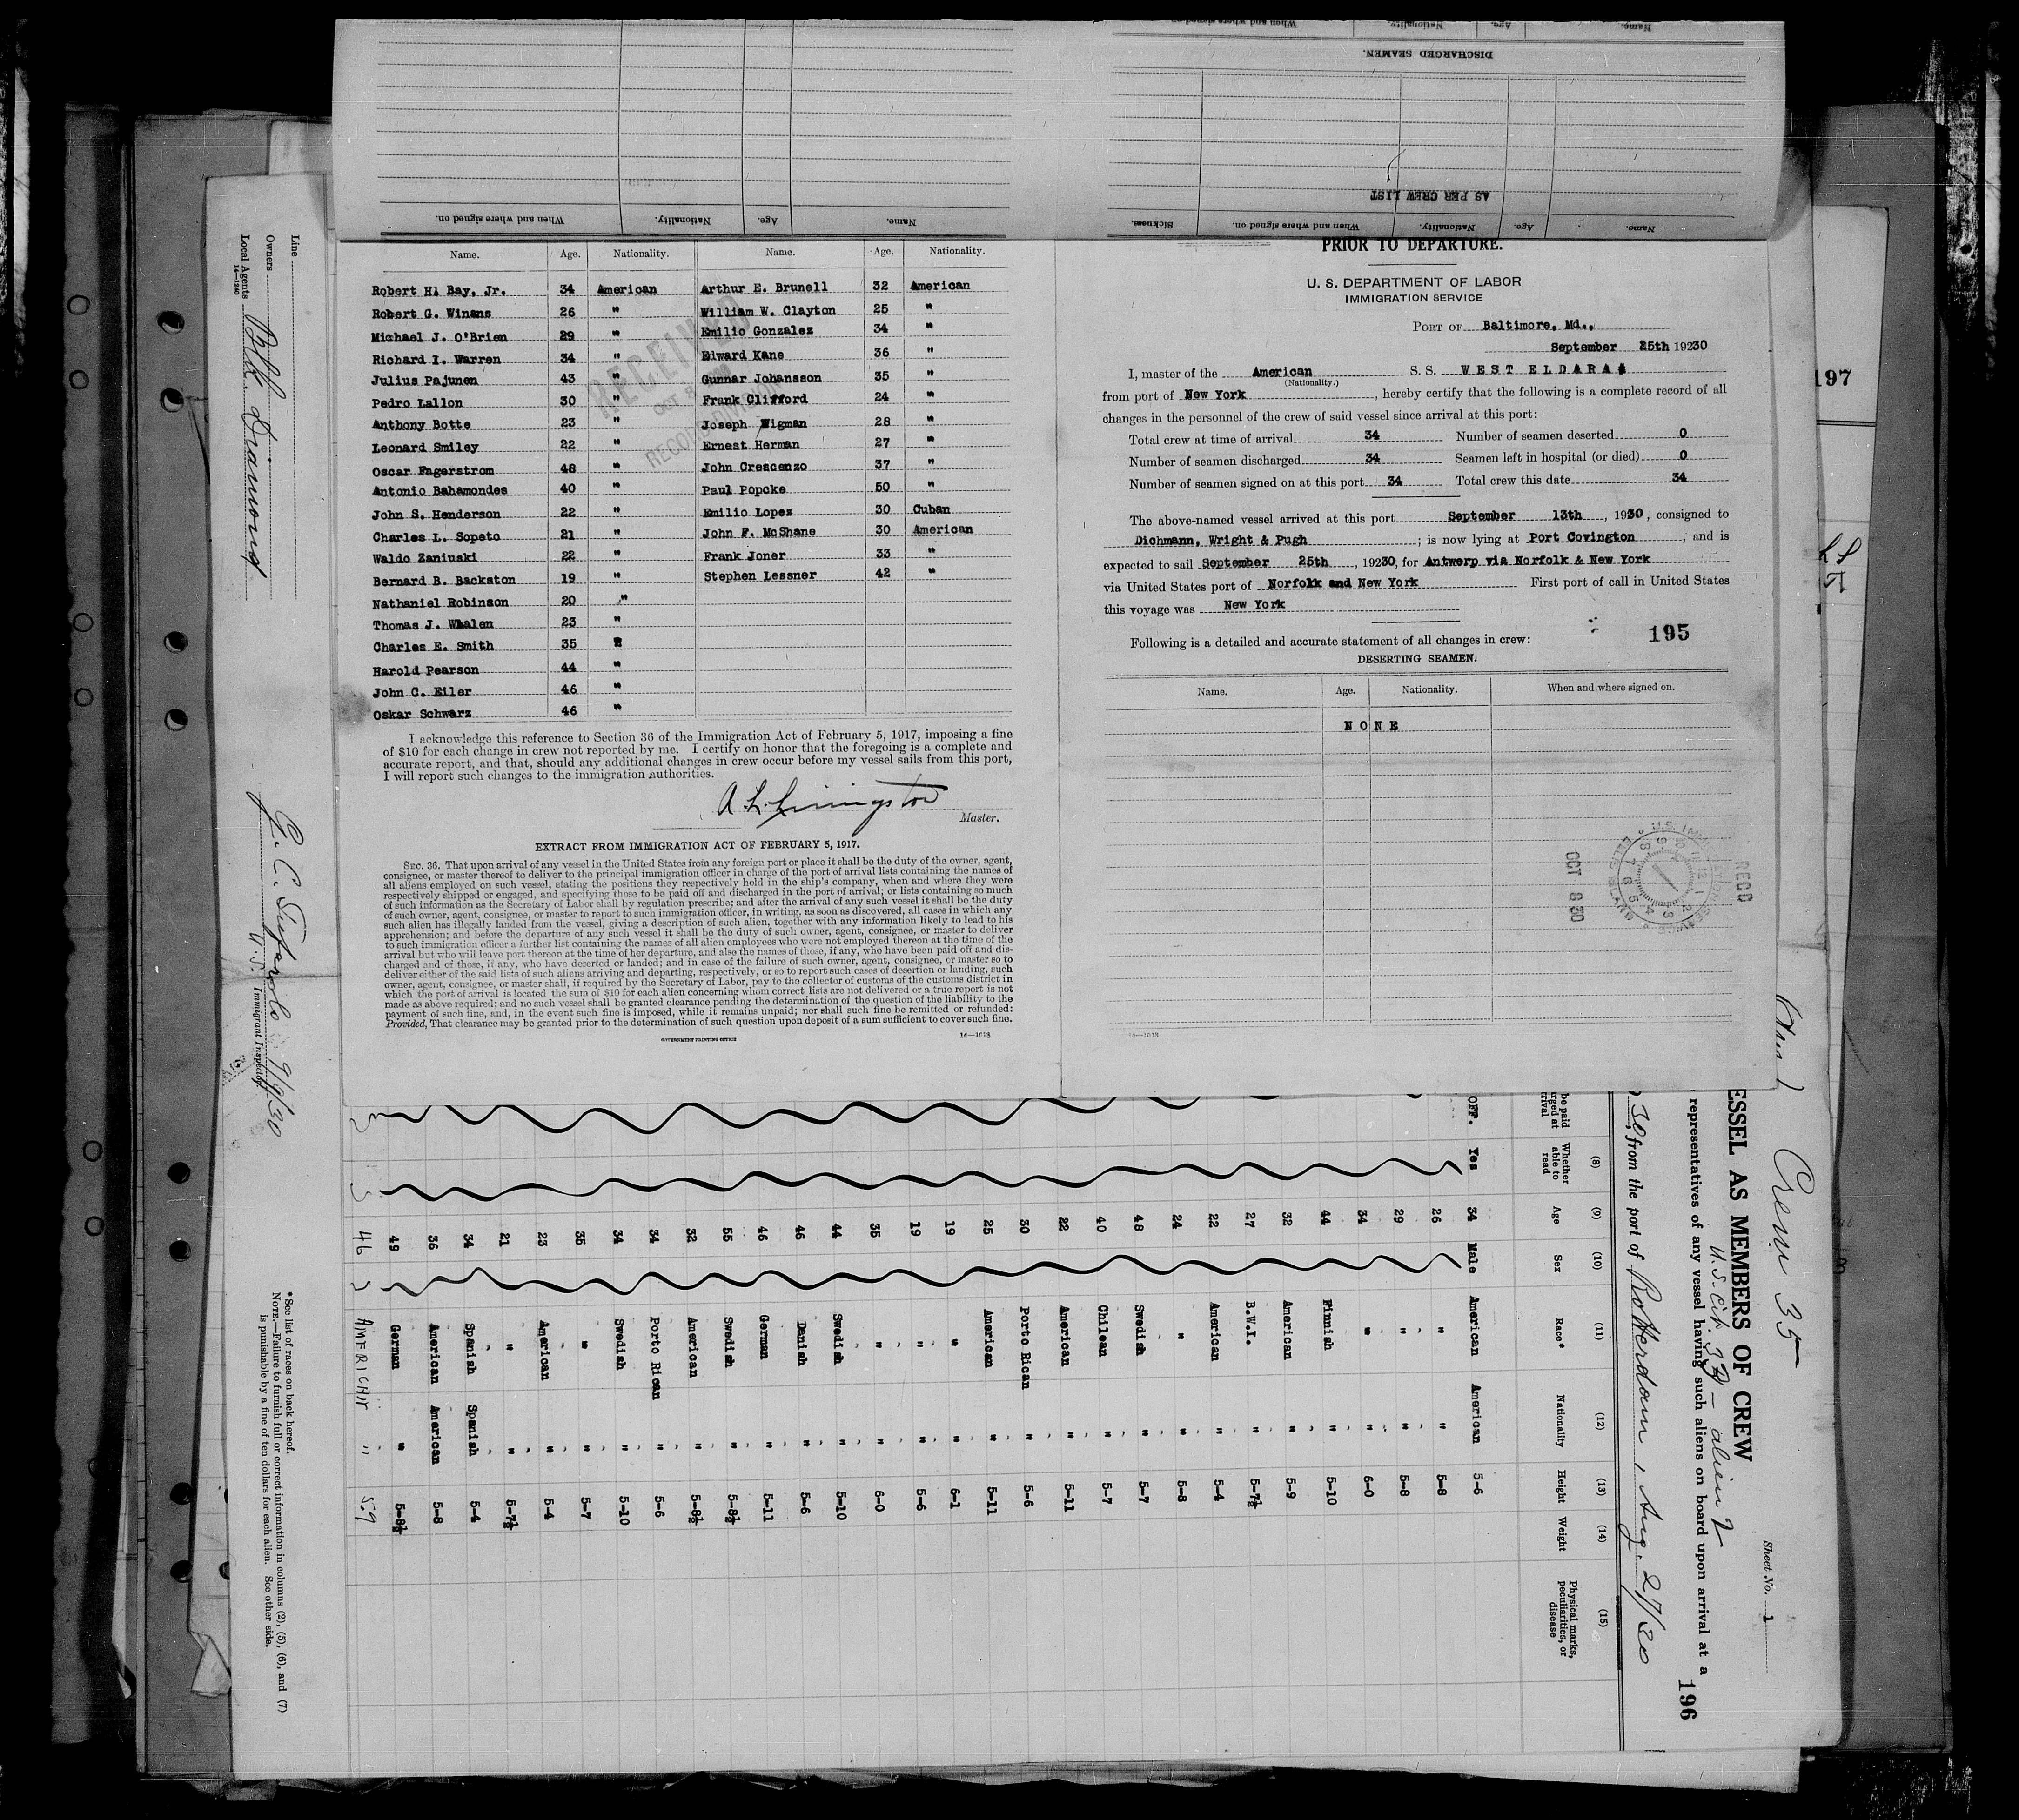 When and where signed on.
Nationality.
Age.
Name.
DISCHARGED SEAMEN.
AS PER CREW LIST
Sickness.
When and where signed on.
Nationality.
Age.
Name.
When and where signed on.
Nationality.
Age.
Name.
Name. Age. Nationality. Name. Age. Nationality.
Robert H. Bay, Jr. 34 American Arthur E. Brunell 32 American
Robert G. Winans 26 " William W. Clayton 25 "
Michael J. O'Brien 29 " Emilio Gonzalez 34 "
Richard I. Warren 34 " Edward Kane 36 "
Julius Pajunen 43 " Gunnar Johansson 35 "
Pedro Lallon 30 " Frank Clifford 24 "
Anthony Botte 23 " Joseph Wigman 28 "
Leonard Smiley 22 " Ernest Herman 27 "
Oscar Fagerstrom 48 " John Crescenzo 37 "
Antonio Bahamondes 40 " Paul Popcke 50 "
John S. Henderson 22 " Emilio Lopez 30 Cuban
Charles L. Sopeto 21 " John F. McShane 30 American
Waldo Zaniuski 22 " Frank Joner 33 "
Bernard B. Backston 19 " Stephen Lessner 42 "
Nathaniel Robinson 20 "
Thomas J. Whalen 23 "
Charles E. Smith 35 "
Harold Pearson 44 "
John C. Eiler 46 "
Oskar Schwarz 46 "
RECEIVED
OCT 8
I acknowledge this reference to Section 36 of the Immigration Act of February 5, 1917, imposing a fine
of $10 for each change in crew not reported by me. I certify on honor that the foregoing is a complete and
accurate report, and that, should any additional changes in crew occur before my vessel sails from this port,
I will report such changes to the immigration authorities.
A. L. Livingston
Master.
EXTRACT FROM IMMIGRATION ACT OF FEBRUARY 5, 1917.
SEC. 36. That upon arrival of any vessel in the United States from any foreign port or place it shall be the duty of the owner, agent,
consignee, or master thereof to deliver to the principal immigration officer in charge of the port of arrival lists containing the names of
all aliens employed on such vessel, stating the positions they respectively hold in the ship's company, when and where they were
respectively shipped or engaged, and specifying those to be paid off and discharged in the port of arrival; or lists containing so much
of such information as the Secretary of Labor shall by regulation prescribe; and after the arrival of any such vessel it shall be the duty
of such owner, agent, consignee, or master to report to such immigration officer, in writing, as soon as discovered, all cases in which any
such alien has illegally landed from the vessel, giving a description of such alien, together with any information likely to lead to his
apprehension; and before the departure of any such vessel it shall be the duty of such owner, agent, consignee, or master to deliver
to such immigration officer a further list containing the names of all alien employees who were not employed thereon at the time of the
arrival but who will leave port thereon at the time of her departure, and also the names of those, if any, who have been paid off and dis-
charged and of those, if any, who have deserted or landed; and in case of the failure of such owner, agent, consignee, or master so to
deliver either of the said lists of such aliens arriving and departing, respectively, or so to report such cases of desertion or landing, such
owner, agent, consignee, or master shall, if required by the Secretary of Labor, pay to the collector of customs of the customs district in
which the port of arrival is located the sum of $10 for each alien concerning whom correct lists are not delivered or a true report is not
made as above required; and no such vessel shall be granted clearance pending the determination of the question of the liability to the
payment of such fine, and, in the event such fine is imposed, while it remains unpaid; nor shall such fine be remitted or refunded:
Provided, That clearance may be granted prior to the determination of such question upon deposit of a sum sufficient to cover such fine.
GOVERNMENT PRINTING OFFICE
PRIOR TO DEPARTURE.
U. S. DEPARTMENT OF LABOR
IMMIGRATION SERVICE
PORT OF Baltimore, Md.,
September 25th 1930
I, master of the American S. S. WEST ELDARA
(Nationality.)
from port of New York, hereby certify that the following is a complete record of all
changes in the personnel of the crew of said vessel since arrival at this port:
Total crew at time of arrival 34 Number of seamen deserted 0
Number of seamen discharged 34 Seamen left in hospital (or died) 0
Number of seamen signed on at this port 34 Total crew this date 34
The above-named vessel arrived at this port September 13th, 1930, consigned to
Dichmann, Wright & Pugh; is now lying at Port Covington, and is
expected to sail September 25th, 1930, for Antwerp via Norfolk & New York
via United States port of Norfolk and New York First port of call in United States
this voyage was New York
Following is a detailed and accurate statement of all changes in crew: 195
DESERTING SEAMEN.
Name. Age. Nationality. When and where signed on.
NONE
RECD
OCT 8 30
197
Crew 35
Sheet No. 1
ESSEL AS MEMBERS OF CREW
representatives of any vessel having such aliens on board upon arrival at a
196
30 from the port of Rotterdam, Aug. 27/30
(8) Whether able to read
(9) Age
(10) Sex
(11) Race*
(12) Nationality
(13) Height
(14) Weight
(15) Physical marks, peculiarities, or disease
OFF. Yes 34 Male American American 5-6
26 " " 5-8
29 " " 5-8
34 " " 6-0
44 Finnish " 5-10
32 American " 5-9
27 B.W.I. " 5-7½
22 American " 5-4
24 " " 5-8
48 Swedish " 5-7
40 Chilean " 5-7
22 American " 5-11
30 Porto Rican " 5-6
25 American " 5-11
19 " " 6-1
19 " " 5-6
35 " " 6-0
44 Swedish " 5-10
46 Danish " 5-6
46 German " 5-11
55 Swedish " 5-8½
32 American " 5-8½
34 Porto Rican " 5-6
34 Swedish " 5-10
35 " " 5-7
23 American " 5-4
21 " " 5-7½
34 Spanish Spanish 5-4
36 American American 5-8
49 German " 5-8½
46 AMERICAN " 59
Line
Owners
Local Agents Blk Diamond
14—1240
Immigrant Inspector.
9/9/30
*See list of races on back hereof.
NOTE.—Failure to furnish full or correct information in columns (2), (5), (6), and (7)
is punishable by a fine of ten dollars for each alien. See other side.